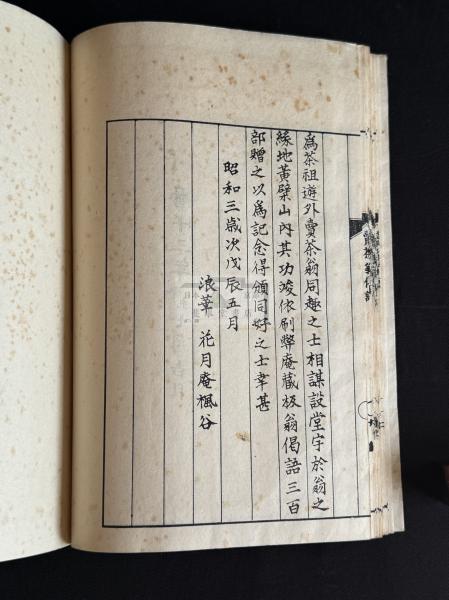 為茶祖遊外賣茶翁同趣之士相謀設堂宇於翁之
緣地黃檗山内其功竣依刷弊庵蔵板翁偈語三百
部贈之以為記念得頒同好之士幸甚
昭和三歳次戊辰五月
浪華 花月庵楓谷